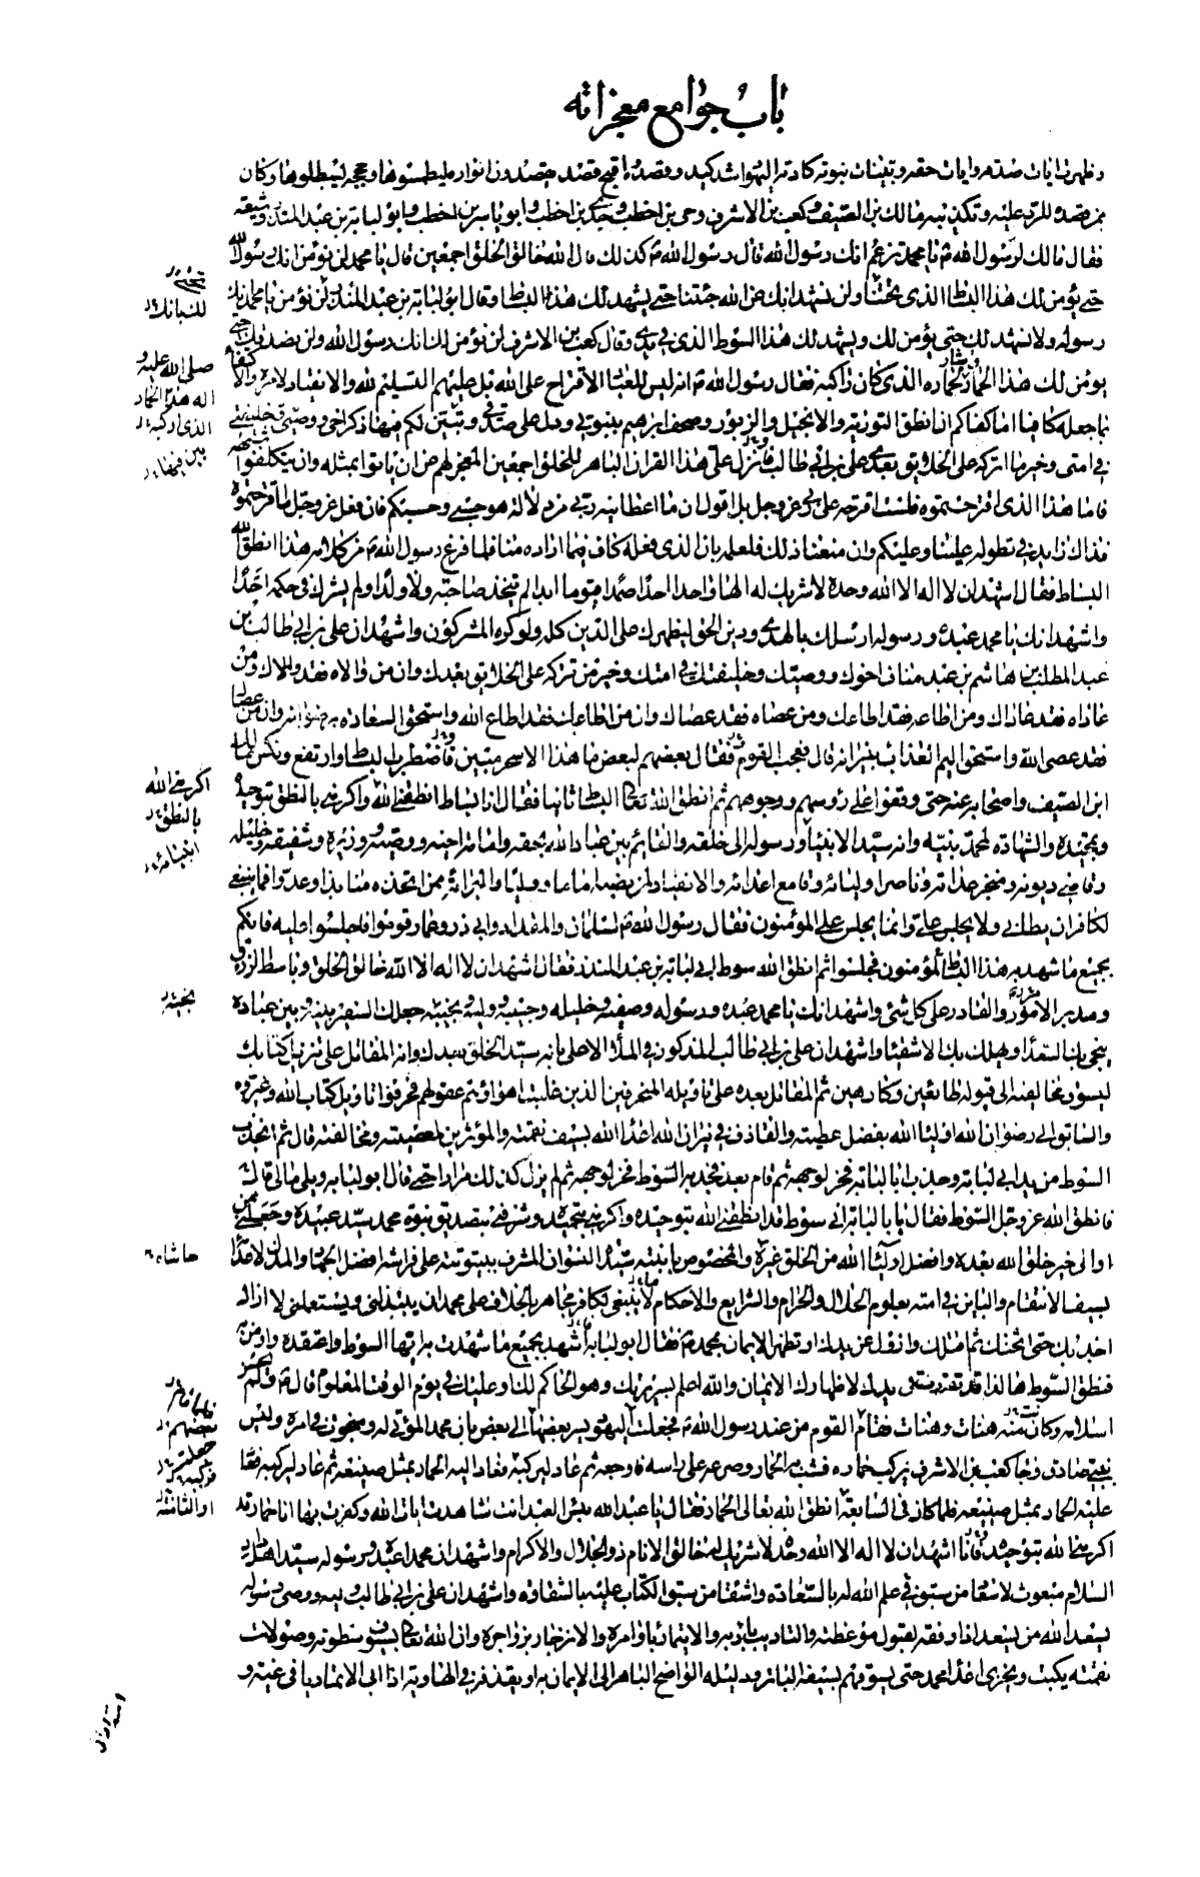 باب جوامع معجزاته
وظهرت ايات صدقه وايات حقه وبينات نبوته كادته اليهود اشد كيد وقصدوه اقبح قصد يقصدون انواره ليطمسوها وحججه ليبطلوها وكان
ممن قصده للرد عليه وتكذيبه مالك بن الصيف وكعب بن الاشرف وحى بن اخطب وجدى بن اخطب وابو ياسر بن اخطب وابو لبابة بن عبد المنذر وشعبة
فقال مالك لرسول الله ص يا محمد تزعم انك رسول الله قال رسول الله ص كذلك قال الله خالق الخلق اجمعين قال يا محمد لن نؤمن انك رسول الله
حتى يؤمن لك هذا البساط الذى تحتنا ولن نشهد انك عن الله جئتنا حتى يشهد لك هذا البساط وقال ابو لبابة بن عبد المنذر لن نؤمن يا محمد انك
رسوله ولا نشهد لك حتى يؤمن لك ويشهد لك هذا السوط الذى فى يدى وقال كعب بن الاشرف لن نؤمن لك انك رسول الله ولن نصدقك حتى
يؤمن لك هذا الحمار لحماره الذى كان راكبه فقال رسول الله ص انه ليس للعباد الاقتراح على الله بل عليهم التسليم لله والانقياد لامره والاكتفاء
بما جعله كافيا اما كفاكم ان انطق التورية والانجيل والزبور وصحف ابرهيم بنبوتى ودل على صدقى وبين لكم فيها ذكر اخى ووصيى وخليفتى
فى امتى وخير ما اتركه على الخلايق بعدى على بن ابى طالب فانزل على هذا القران الباهر للخلق اجمعين المعجز لهم عن ان ياتوا بمثله وان يتكلفوا شبهه
فاما هذا الذى اقترحتموه فلست اقترحه على ربى عز وجل بل اقول ان ما اعطانيه ربى من دلالة هو حسبى وحسبكم فان فعل عز وجل ما اقترحتموه
فذاك زايد فى تطوله علينا وعليكم وان منعنا ذلك فلعلمه بان الذى فعله كاف فيما اراده منا فلما فرغ رسول الله ص من كلامه هذا انطق الله
البساط فقال اشهد ان لا اله الا الله وحده لا شريك له الها واحدا احدا صمدا قيوما ابدا لم يتخذ صاحبة ولا ولدا ولم يشرك فى حكمه احدا
واشهد انك يا محمد عبده ورسوله ارسلك بالهدى ودين الحق ليظهرك على الدين كله ولو كره المشركون واشهد ان على بن ابى طالب بن
عبد المطلب بن هاشم بن عبد مناف اخوك ووصيك وخليفتك فى امتك وخير من تتركه على الخلايق بعدك وان من والاه فقد والاك ومن
عاداه فقد عاداك ومن اطاعه فقد اطاعك ومن عصاه فقد عصاك وان من اطاعك فقد اطاع الله واستحق السعادة برضوانه وان من عصاك
فقد عصى الله واستحق اليم العذاب بنيرانه قال فعجب القوم فقال بعضهم لبعض ما هذا الا سحر مبين فاضطرب البساط وارتفع ونكس مالك
ابن الصيف واصحابه عنه حتى وقعوا على رؤسهم ووجوههم ثم انطق الله تعالى البساط ثانيا فقال انا بساط انطقنى الله واكرمنى بالنطق بتوحيده
وبتمجيده والشهادة لمحمد نبيه وانه سيد الانبياء ورسوله الى خلقه والقايم بين عباد الله بحقه وامامة اخيه ووصيه ووزيره وشقيقه وخليله
وقاضى ديونه ومنجز عداته وناصر اوليائه وقامع اعدائه والانقياد لمن نصبه اماما ووليا والبراءة ممن اتخذه منابذا وعدوا فما ينبغى
لكافر ان يطأنى ولا يجلس على وانما يجلس على المؤمنون فقال رسول الله ص لسلمان والمقداد وابى ذر وعمار قوموا فاجلسوا عليه فانكم
بجميع ما شهد به هذا البساط لمؤمنون فجلسوا ثم انطق الله سوط ابى لبابة بن عبد المنذر فقال اشهد ان لا اله الا الله خالق الخلق وباسط الرزق
ومدبر الامور والقادر على كل شئ واشهد انك يا محمد عبده ورسوله وصفيه وخليله وحبيبه ووليه ونجيبه جعلك السفير بينه وبين عباده
لينجى بك السعداء ويهلك بك الاشقياء واشهد ان على بن ابى طالب المذكور فى الملأ الاعلى بانه سيد الخلق بعدك وانه المقاتل على تنزيل كتابك
ليسوق مخالفيه الى قبوله طائعين وكارهين ثم المقاتل بعده على تاويله المنحرفين الذين غلبت اهواؤهم عقولهم فحرفوا تاويل كتاب الله وغيروه
والسابق الى رضوان الله اولياء الله بفضل عطيته والقاذف فى نيران الله اعداء الله بسيف نقمته والمؤثرين لمعصيته ومخالفته قال ثم انجذب
السوط من يد ابى لبابة وجذب ابا لبابة فخر لوجهه ثم قام بعد فجذبه السوط فخر لوجهه ثم لم يزل كذلك مرارا حتى قال ابو لبابة ويلى مالى قال
فانطق الله عز وجل السوط فقال يا ابا لبابة انى سوط قد انطقنى الله بتوحيده واكرمنى بتمجيده وشرفنى بتصديق نبوة محمد سيد عبيده وجعلنى ممن
اوالى خير خلق الله بعده وافضل اولياء الله من الخلق غيره والمخصوص بابنته سيدة النسوان المشرف ببيتوتته على فراشه افضل الجهاد والمذل لاعدائه
بسيف الانتقام والباين فى امته بعلوم الحلال والحرام والشرايع والاحكام ما ينبغى لكافر مجاهر بالخلاف على محمد ان يبتذلنى ويستعملنى لا ازال
اجذبك حتى اثخنك ثم اقتلك وازول عن يدك او تظهر الايمان بمحمد ص فقال ابو لبابة اشهد بجميع ما شهدت به ايها السوط واعتقده واومن به
فنطق السوط هاانا ذا قد تقررت فى يدك لاظهارك الايمان والله اعلم بسريرتك وهو الحاكم لك وعليك فى يوم الوقت المعلوم قال ص ولم يحسن
اسلامه وكان منه هنات وهنات فقام القوم من عند رسول الله ص فجعلت اليهود يسر بعضها الى بعض بان محمدا لمؤتى له ومبخوت فى امره وليس
بنبى صادق وجاء كعب بن الاشرف يركب حماره فشب به الحمار وصرعه على راسه فاوجعه ثم عاد ليركبه فعاد اليه الحمار بمثل صنيعه ثم عاد ليركبه فعاد
عليه الحمار بمثل صنيعه فلما كان فى السابعة انطق الله تعالى الحمار فقال يا عبد الله بئس العبد انت شاهدت ايات الله وكفرت بها انا حمار قد
اكرمنى الله بتوحيده فانا اشهد ان لا اله الا الله وحده لا شريك له خالق الانام ذو الجلال والاكرام واشهد ان محمدا عبده ورسوله سيد اهل دار
السلام مبعوث لاسعاد من سبق فى علم الله له بالسعادة واشقاء من سبق الكتاب عليه بالشقاوة واشهد ان على بن ابى طالب وليه ووصى رسوله
يسعد الله من يسعد اذا وفقه لقبول موعظته والتاديب بادبه والايتمار باوامره والانزجار بزواجره وان الله تعالى بسيوف سطوته وصولات
نقمته يكبت ويخزى اعداء محمد حتى يسوقهم بسيفه الباتر ودليله الواضح الباهر الى الايمان به او يقذفه فى الهاوية اذا ابى الا تماديا فى غيه و
للك بانك
صلى الله عليه و
اله هذا الحمار
الذى اركبه
اكرمنى الله
بالنطق
نجيبه
هاشا
بعضهم
او الثالثة